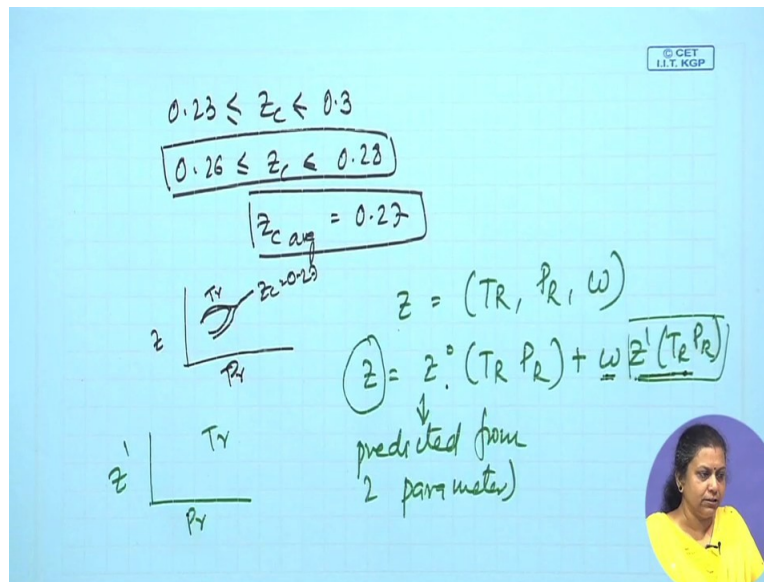 © CET
I.I.T. KGP
0.23 ≤ Zc ≤ 0.3
0.26 ≤ Zc ≤ 0.28
Zc avg = 0.27
Z
Tr
Zc = 0.27
Pr
Z = (TR, PR, ω)
Z = Z⁰ (TR PR) + ω Z' (TR PR)
↓
predicted from
2 parameter)
Z'
Tr
Pr